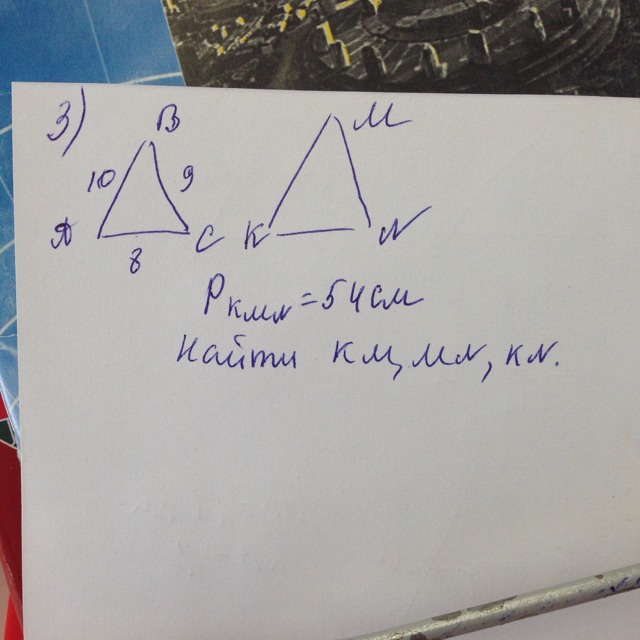 3)
B
M
10
9
A
C
K
N
8
P KMN = 54 см
Найти КМ, MN, KN.